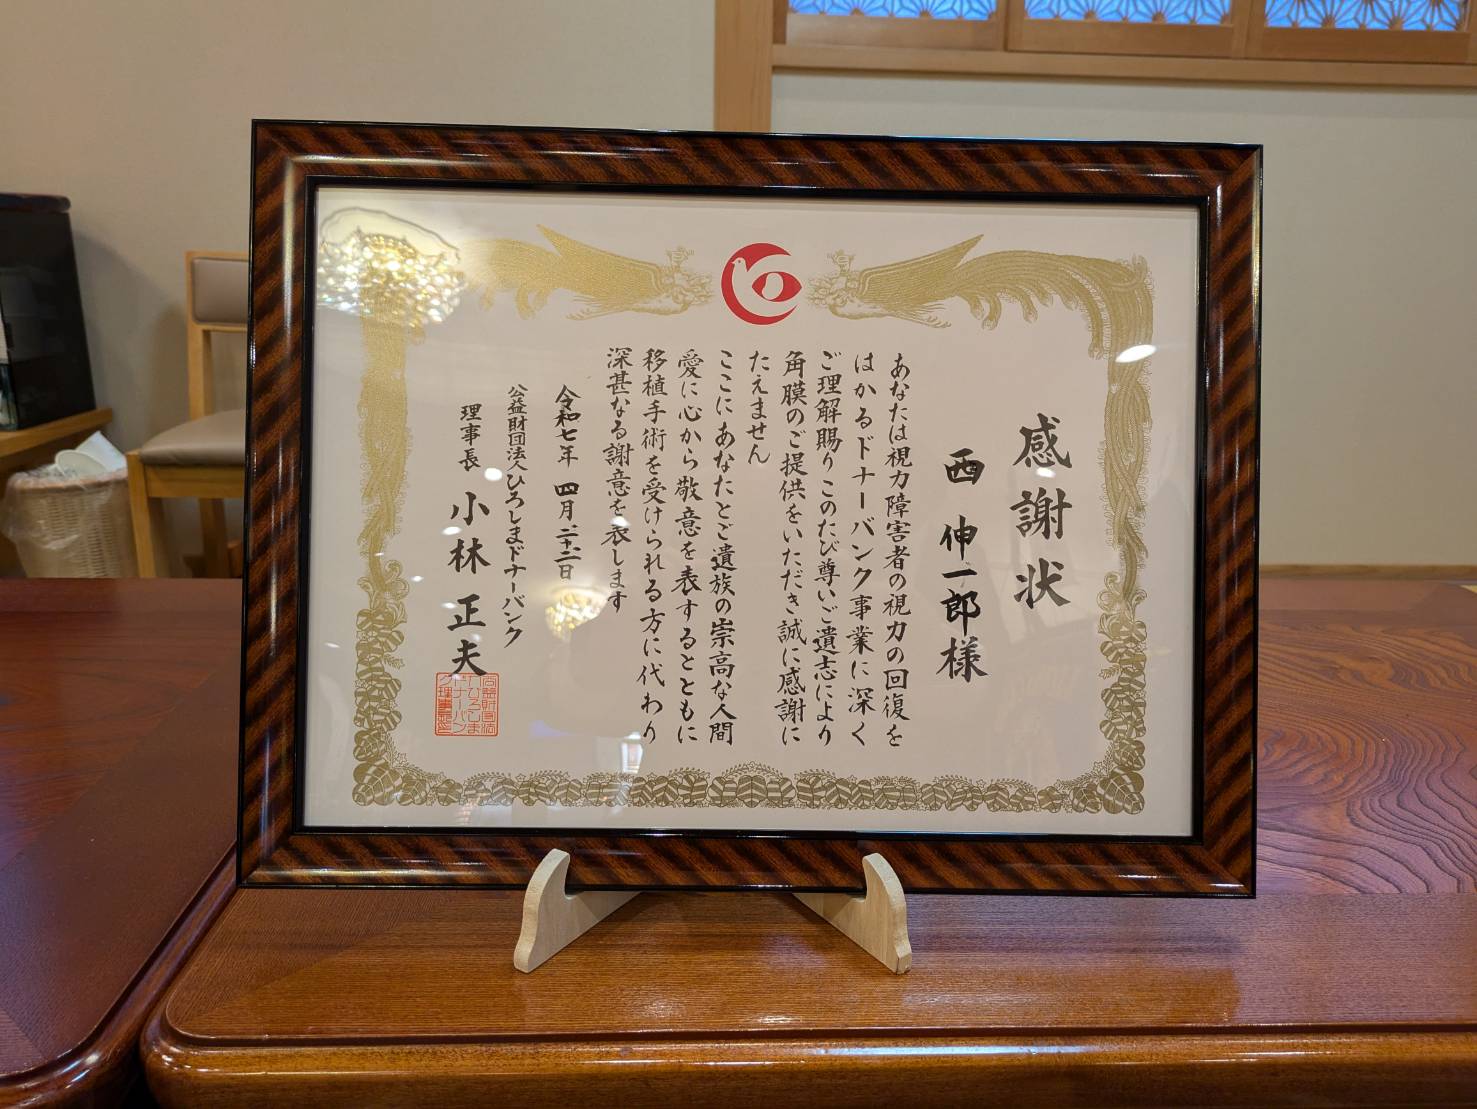 感謝状
西 伸一郎様
あなたは視力障害者の視力の回復を
はかるドナーバンク事業に深く
ご理解賜りこのたび尊いご遺志により
角膜のご提供をいただき誠に感謝に
たえません
ここにあなたとご遺族の崇高な人間
愛に心から敬意を表するとともに
移植手術を受けられる方に代わり
深甚なる謝意を表します
令和七年 四月二十二日
公益財団法人ひろしまドナーバンク
理事長 小林 正夫